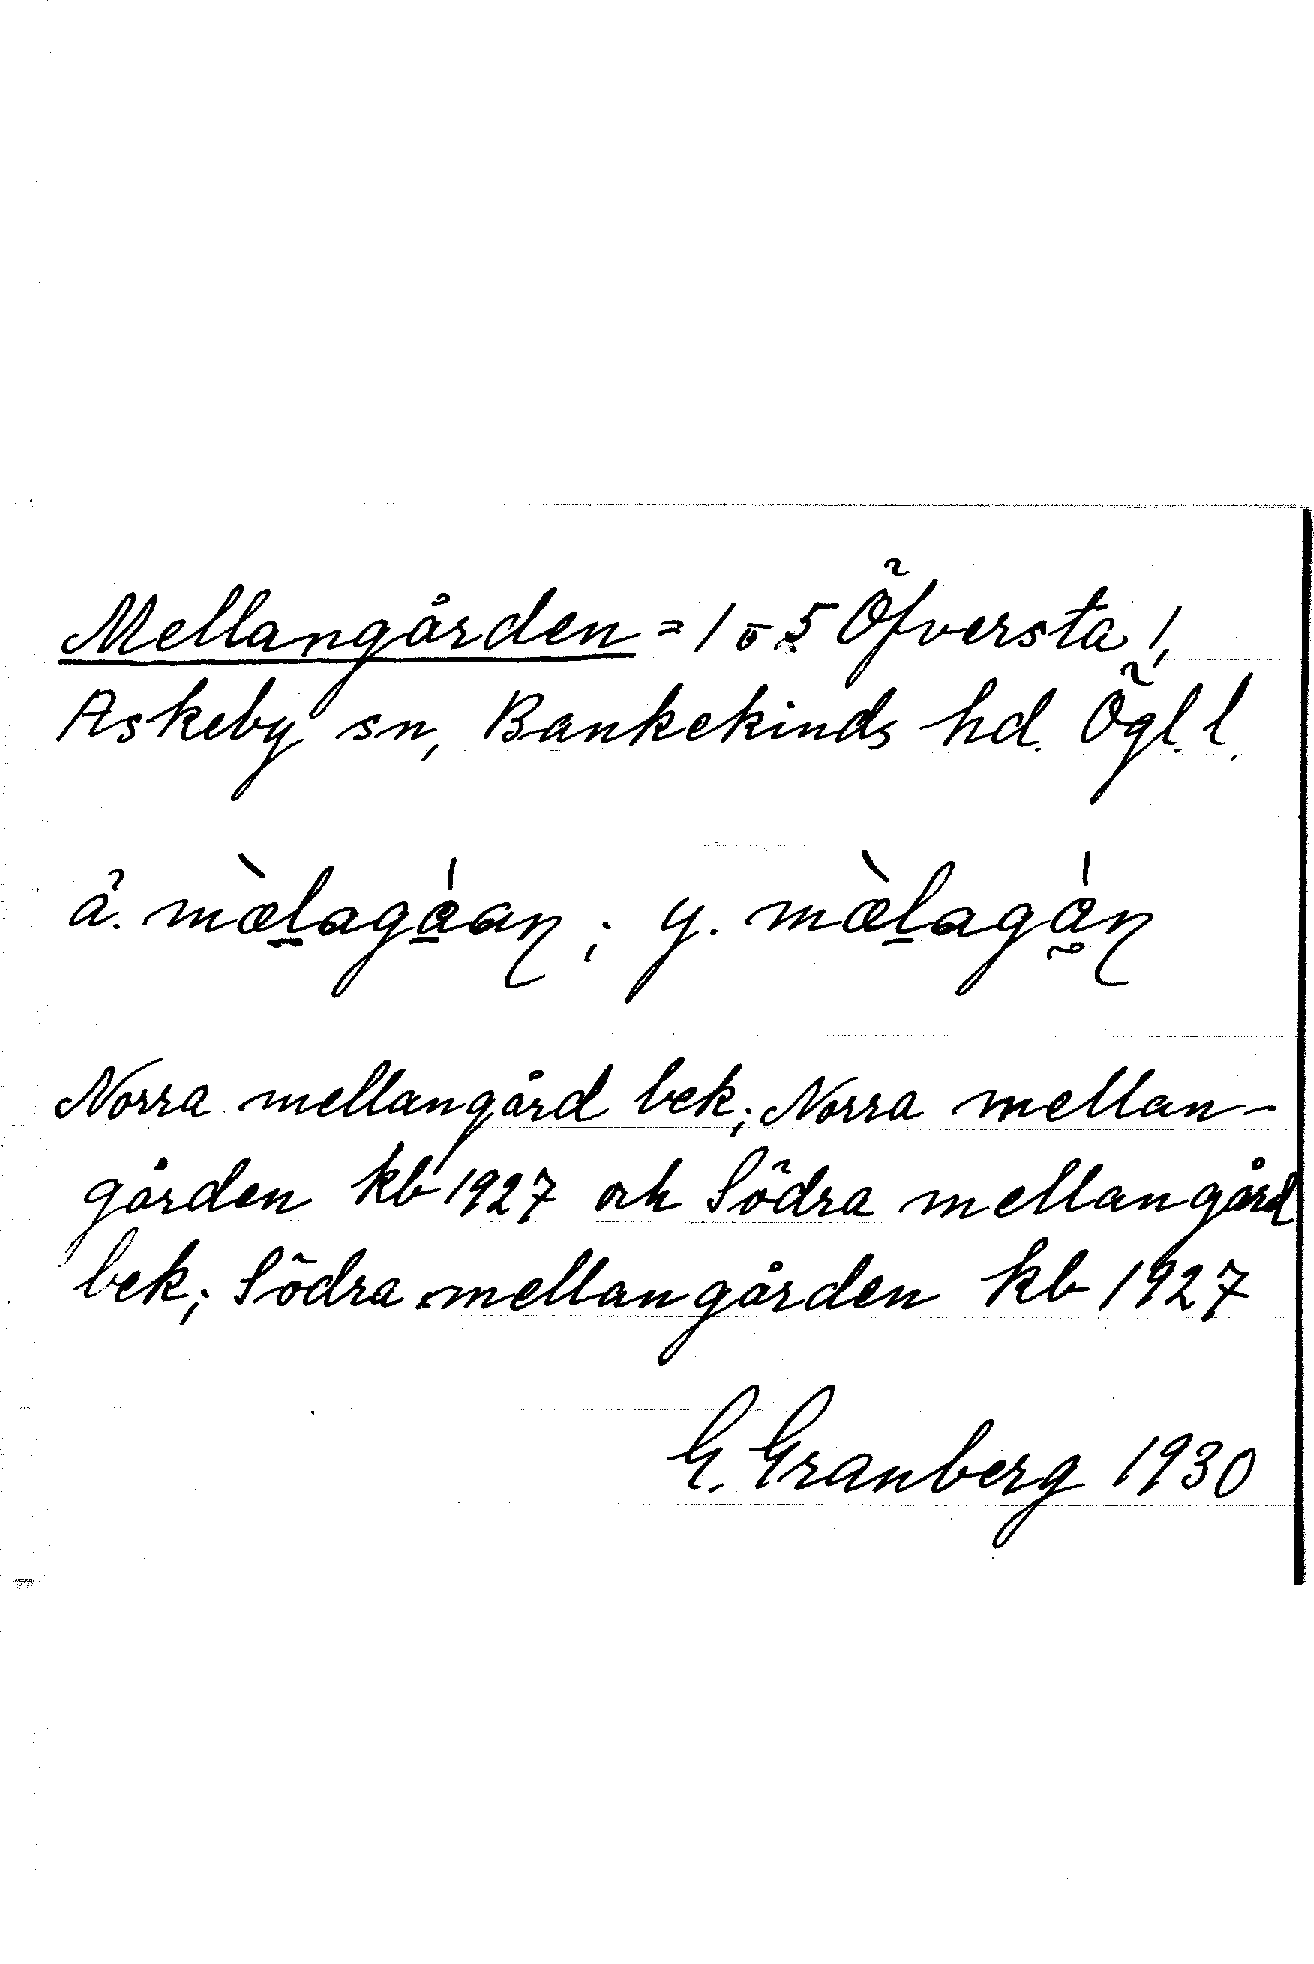 Mellangården = 1 o 5 Öfversta 1,
Askeby sn, Bankekinds hd. Ögl. l.
ä. mæ̀lagáan ; y. mæ̀lagán
Norra mellangård bek; Norra mellan-
gården kb 1927 och Södra mellangård
bek; Södra mellangården kb 1927
G. Granberg 1930